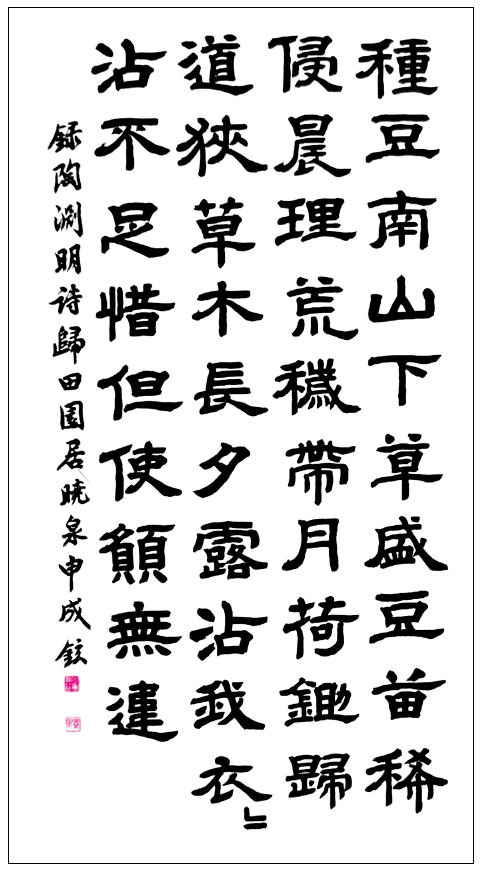 種豆南山下草盛豆苗稀
侵晨理荒穢帶月荷鋤歸
道狹草木長夕露沾我衣〻
沾不足惜但使願無違
録陶淵明詩歸田園居曉泉申成鉉